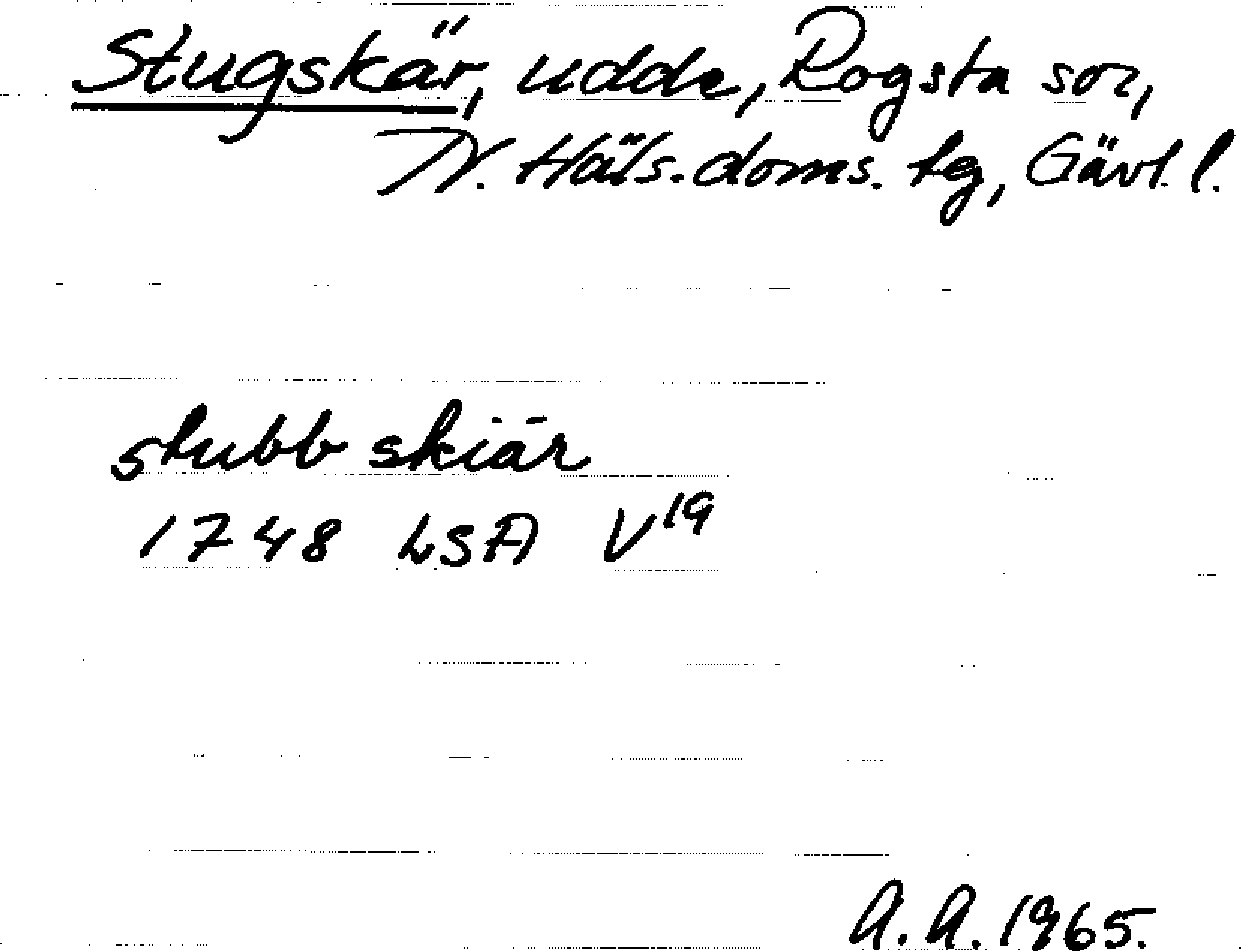 Stugskär, udde, Rogsta sn,
N. Häls. doms. tg, Gävl. l.
stubb skiär
1748 LSA V19
A. A. 1965.